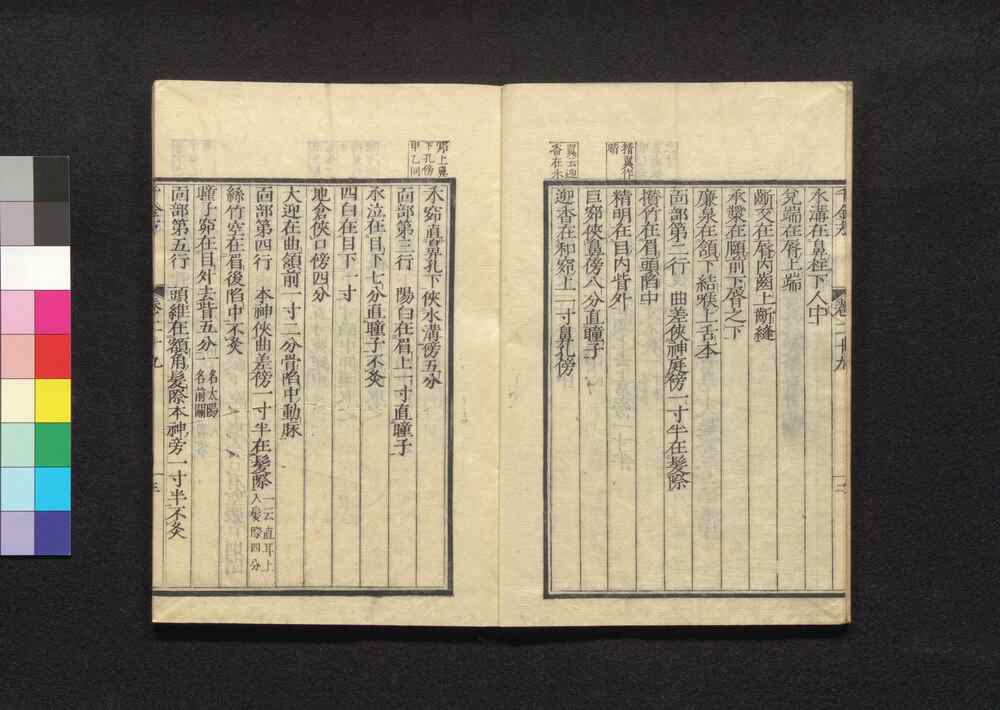 水溝在鼻柱下人中
兌端在脣上端
齗交在脣內齒上齗縫
承漿在頤前下脣之下
廉泉在頷下結喉上舌本
面部第二行 曲差俠神庭傍一寸半在髮際
攢竹在眉頭陷中
精明在目內眥外
巨窌俠鼻傍八分直瞳子
迎香在和窌上一寸鼻孔傍
水窌直鼻孔下俠水溝傍五分
面部第三行 陽白在眉上一寸直瞳子
承泣在目下七分直瞳子不灸
四白在目下一寸
地倉俠口傍四分
大迎在曲頷前一寸二分骨陷中動脈
面部第四行 本神俠曲差傍一寸半在髮際
一云直耳上
入髮際四分
絲竹空在眉後陷中不灸
瞳子窌在目外去眥五分
一名太陽
一名前關
面部第五行 頭維在額角髮際本神旁一寸半不灸